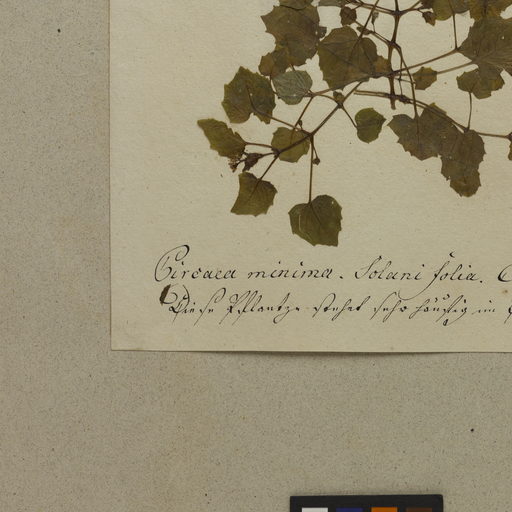 Circaea minima. Solani folia. C
Diese Pflantze stehet sehr häuffig im